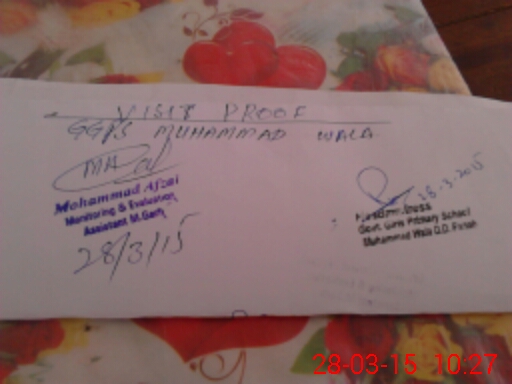 VISIT PROOF
GGPS MUHAMMAD WALA
MA
Mohammad Afzal
Monitoring & Evaluation
Assistant M.Garh
28/3/15
28-3-2015
Headmistress
Govt. Girls Primary School
Muhammad Wala D.D. Panah
28-03-15 10:27